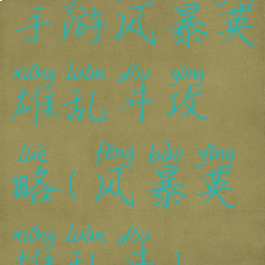 手游风暴英
xióng luàn dòu gōng
雄乱斗攻
lüè fēng bào yīng
略(风暴英
xióng luàn dòu
雄乱斗)